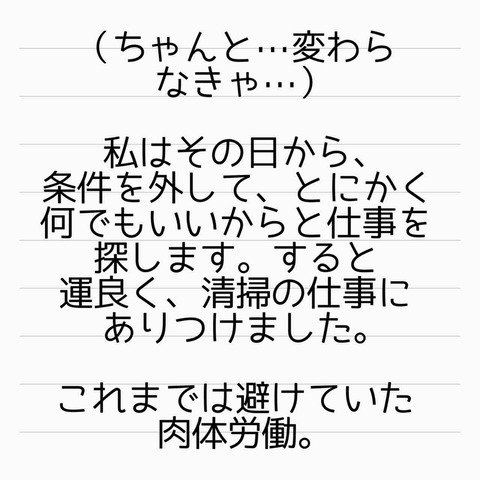 （ちゃんと…変わら
なきゃ…）
私はその日から、
条件を外して、とにかく
何でもいいからと仕事を
探します。すると
運良く、清掃の仕事に
ありつけました。
これまでは避けていた
肉体労働。